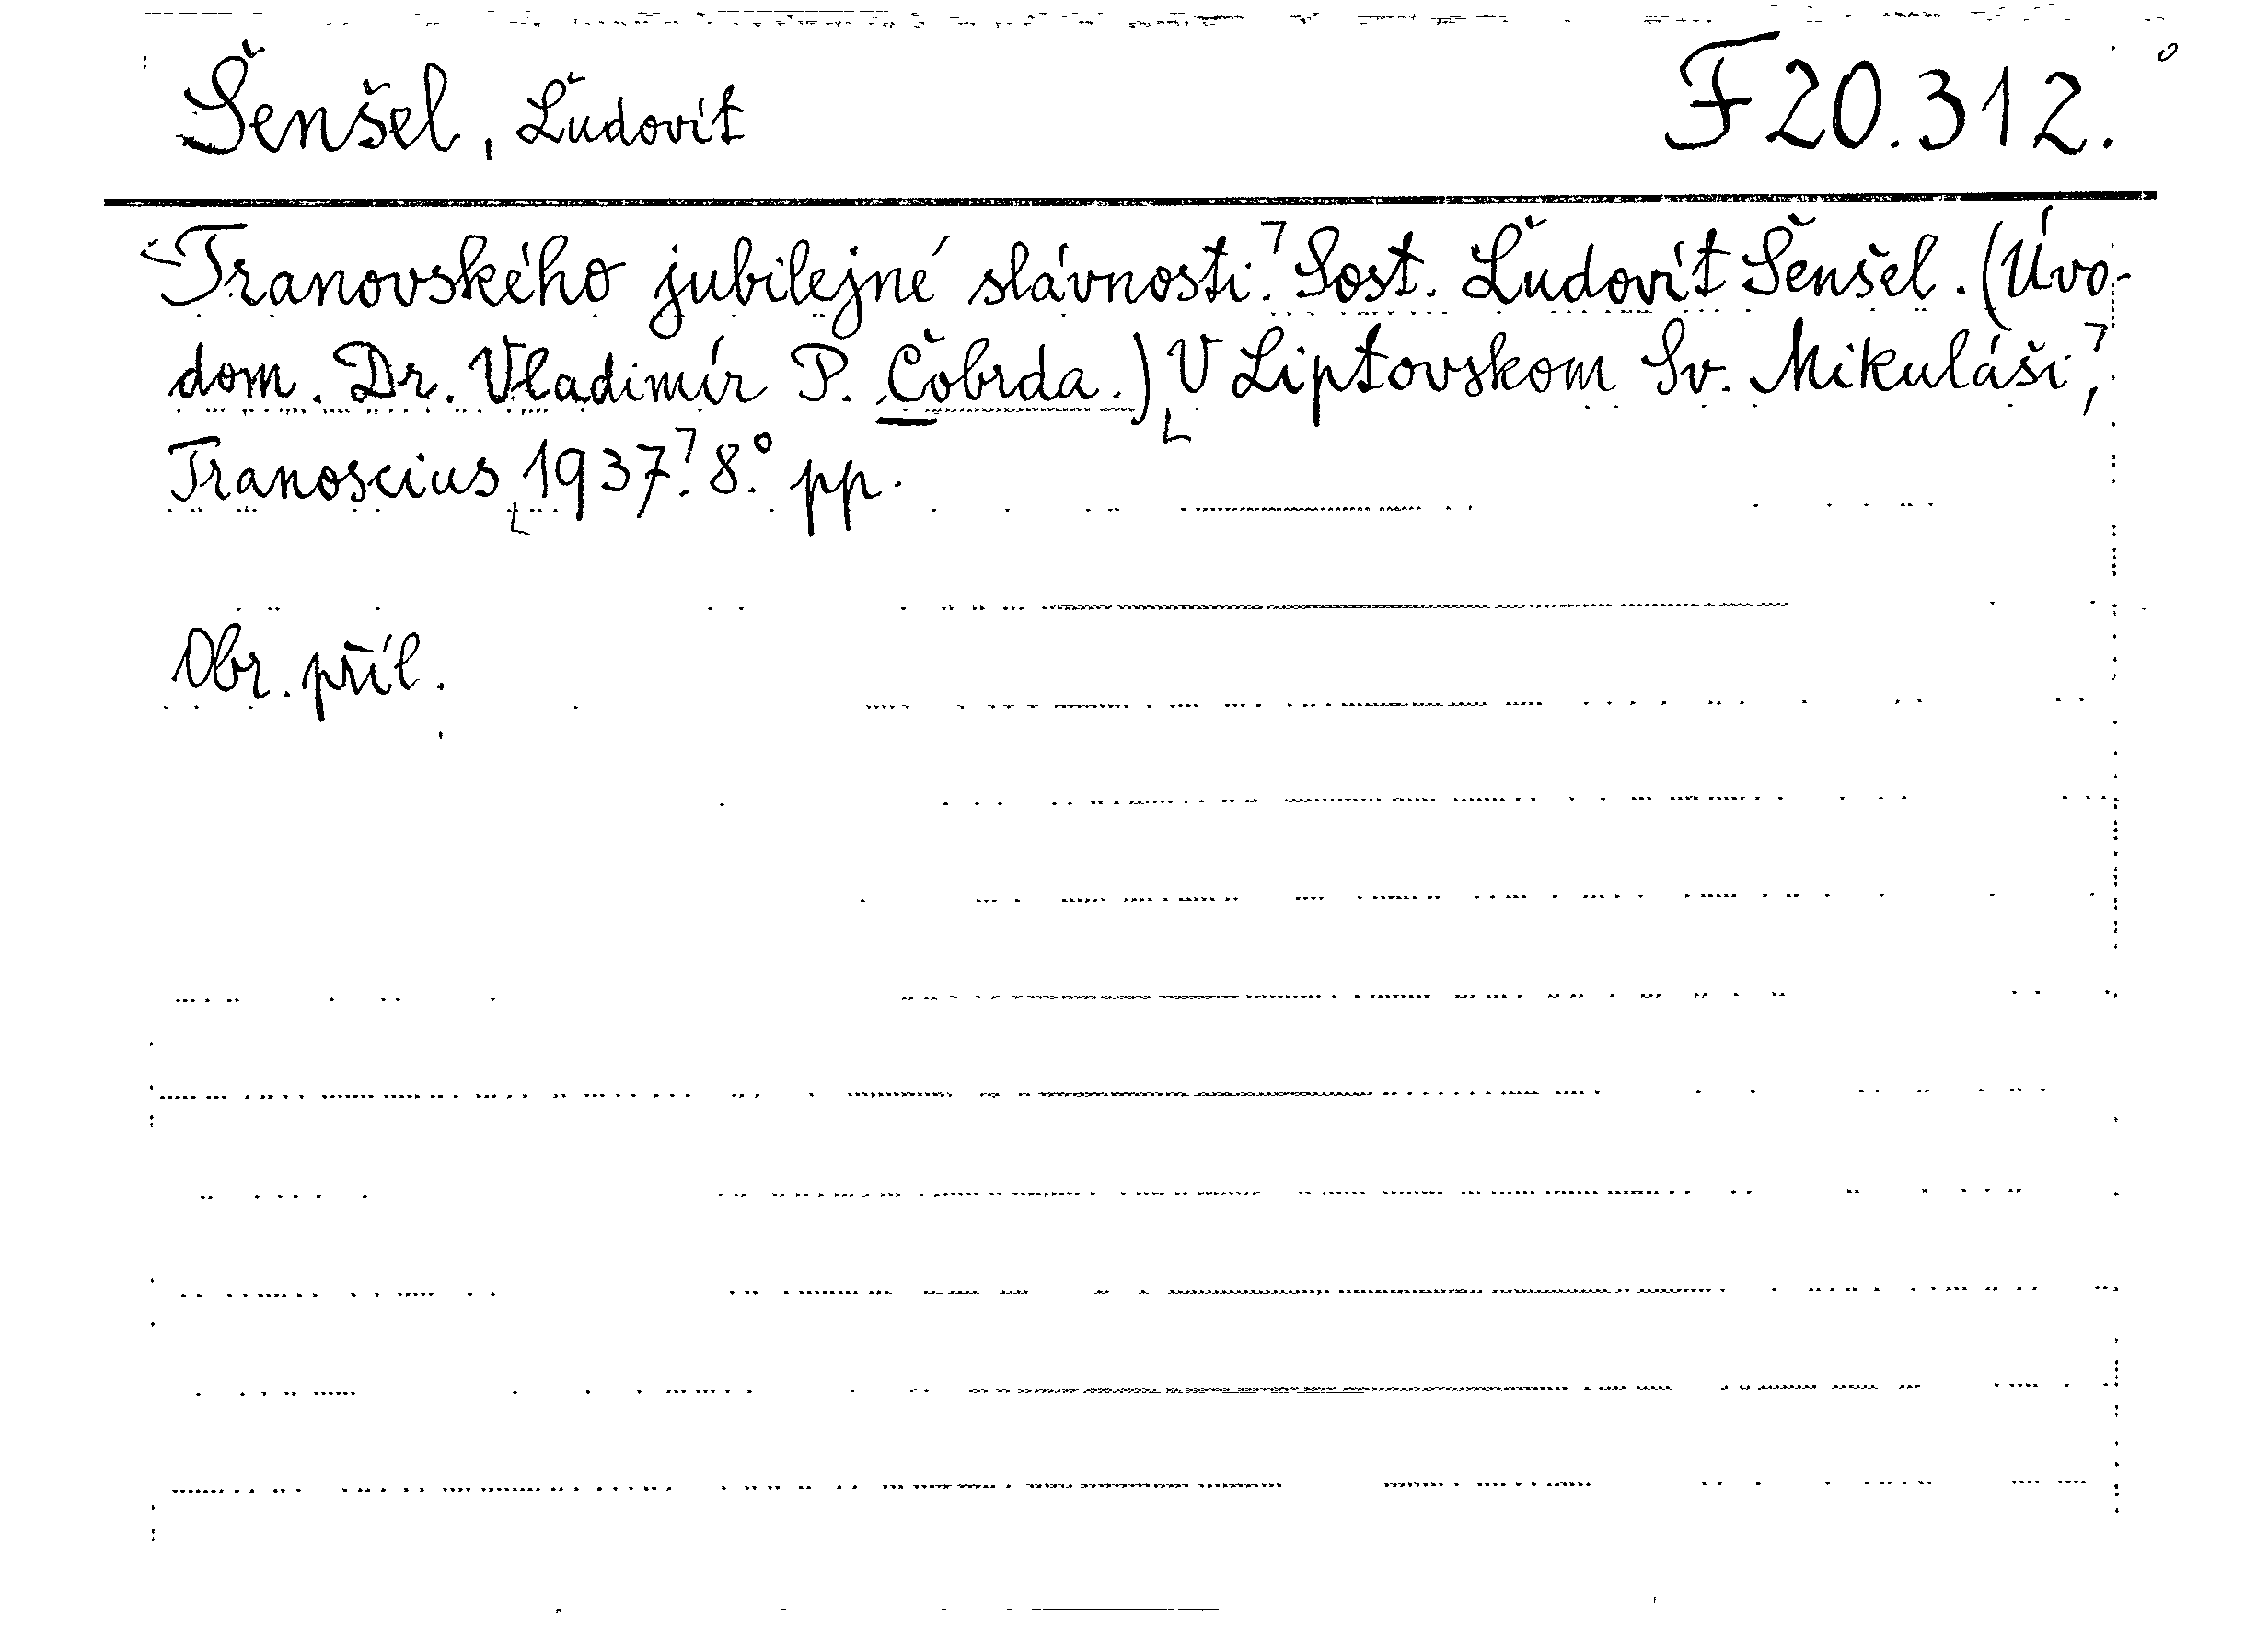 Šenšel, Ľudovít F 20.312.
Tranovského jubilejné slávnosti. Sost. Ľudovít Šenšel. (Úvo-
dom. Dr. Vladimír P. Čobrda.) V Liptovskom Sv. Mikuláši,
Tranoscius 1937. 8.° pp.
Obr. příl.